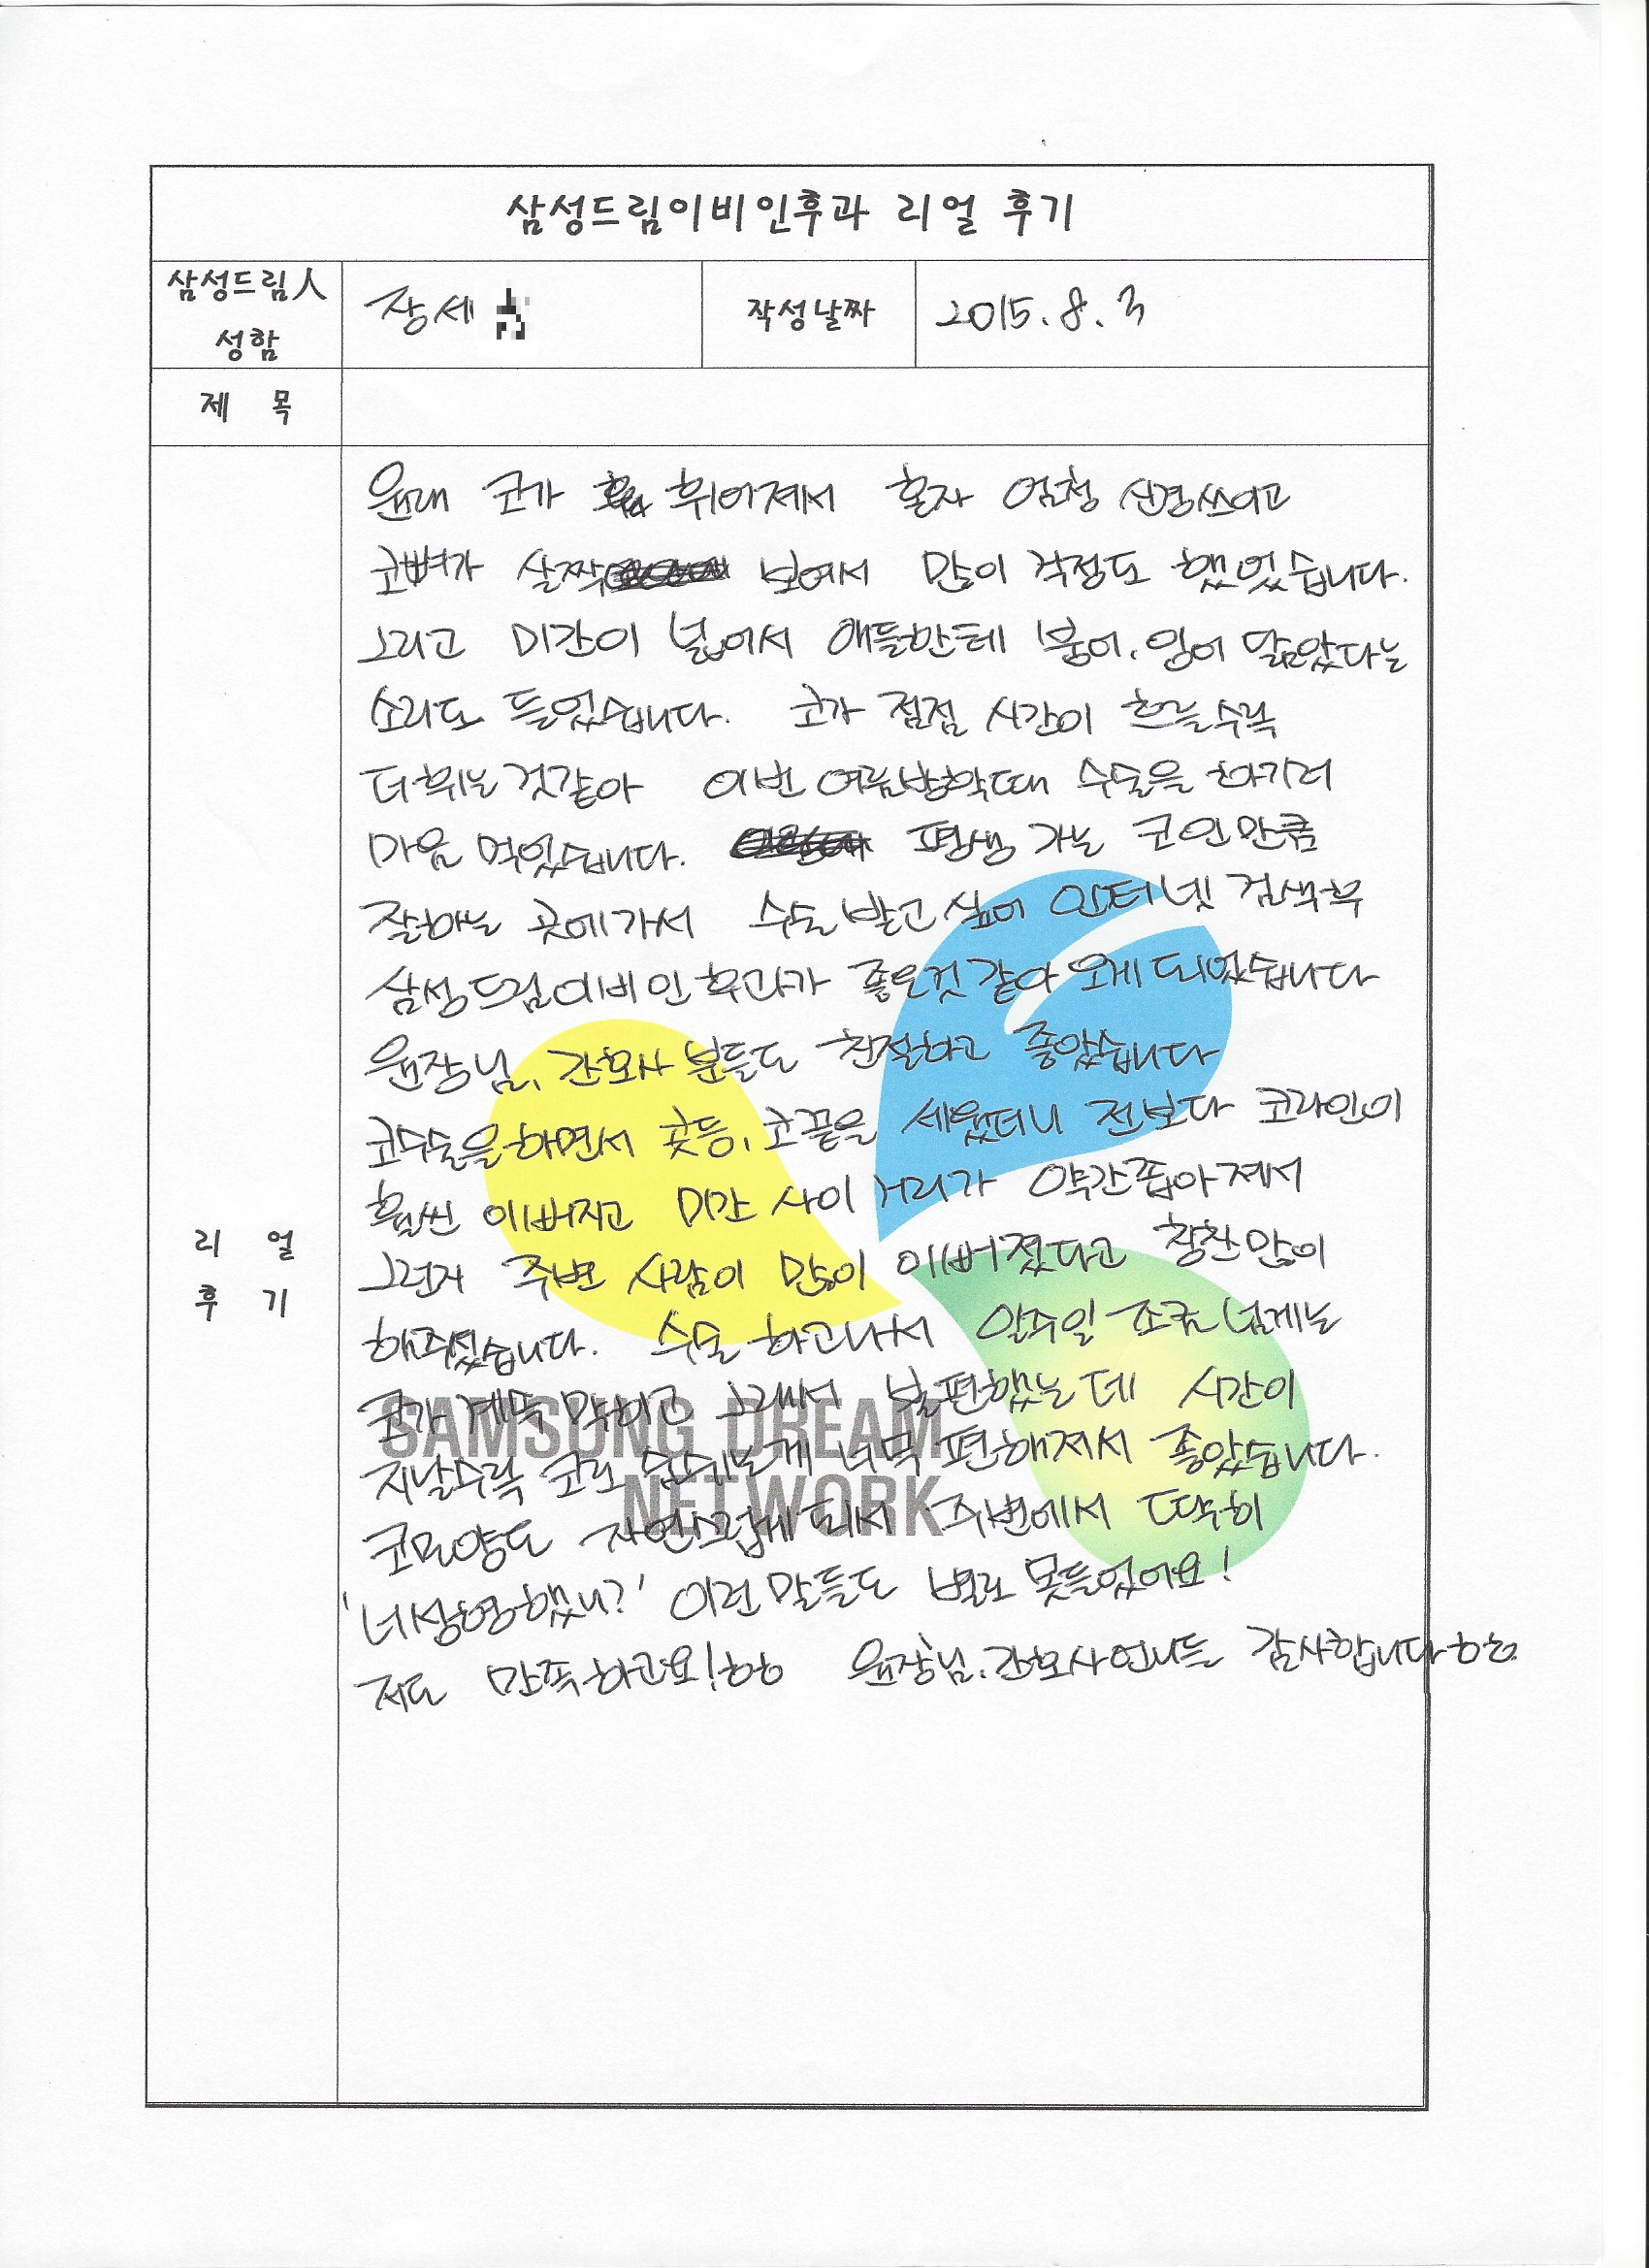 삼성드림이비인후과 리얼 후기
삼성드림人
성함
장세
작성날짜
2015. 8. 3
제 목
원래 코가 휘어져서 혼자 엄청 신경쓰이고
코뼈가 살짝 보여서 많이 걱정도 했었습니다.
그리고 미간이 넓어서 애들한테 붕어, 잉어 닮았다는
소리도 들었습니다. 코가 점점 시간이 흐를수록
더휘는 것같아 이번 여름방학때 수술을 하기러
마음 먹었습니다. 평생 가는 코인만큼
잘하는 곳에가서 수술 받고싶어 인터넷 검색후
삼성드림이비인후과가 좋은것 같아 오게되었습니다
원장님, 간호사 분들도 친절하고 좋았습니다
코수술을하면서 콧등, 코끝을 세웠더니 전보다 코라인이
훨씬 이뻐지고 미간 사이 거리가 약간좁아져서
그런지 주변 사람이 많이 이뻐졌다고 칭찬많이
해주셨습니다. 수술 하고나서 일주일 조금 넘게는
코가 계속 막히고 그래서 불편했는데 시간이
지날수록 코로 숨쉬는게 너무 편해져서 좋았습니다.
코모양도 자연스럽게되서 주변에서 딱히
'너성형했니?' 이런말들도 별로 못들었어요!
저도 만족하고요!ㅎㅎ 원장님, 간호사언니들 감사합니다ㅎㅎ
리 얼
후 기
SAMSUNG DREAM
NETWORK